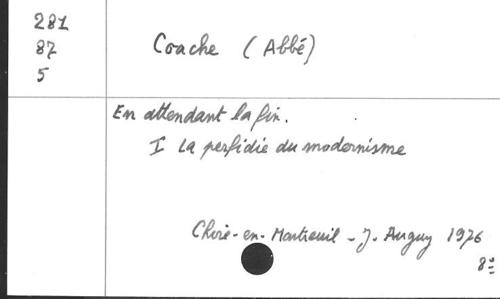 281
87
5
Coache (Abbé)
En attendant la fin.
I La perfidie du modernisme
Chiré-en-Montreuil - J. Auguy 1976
8°